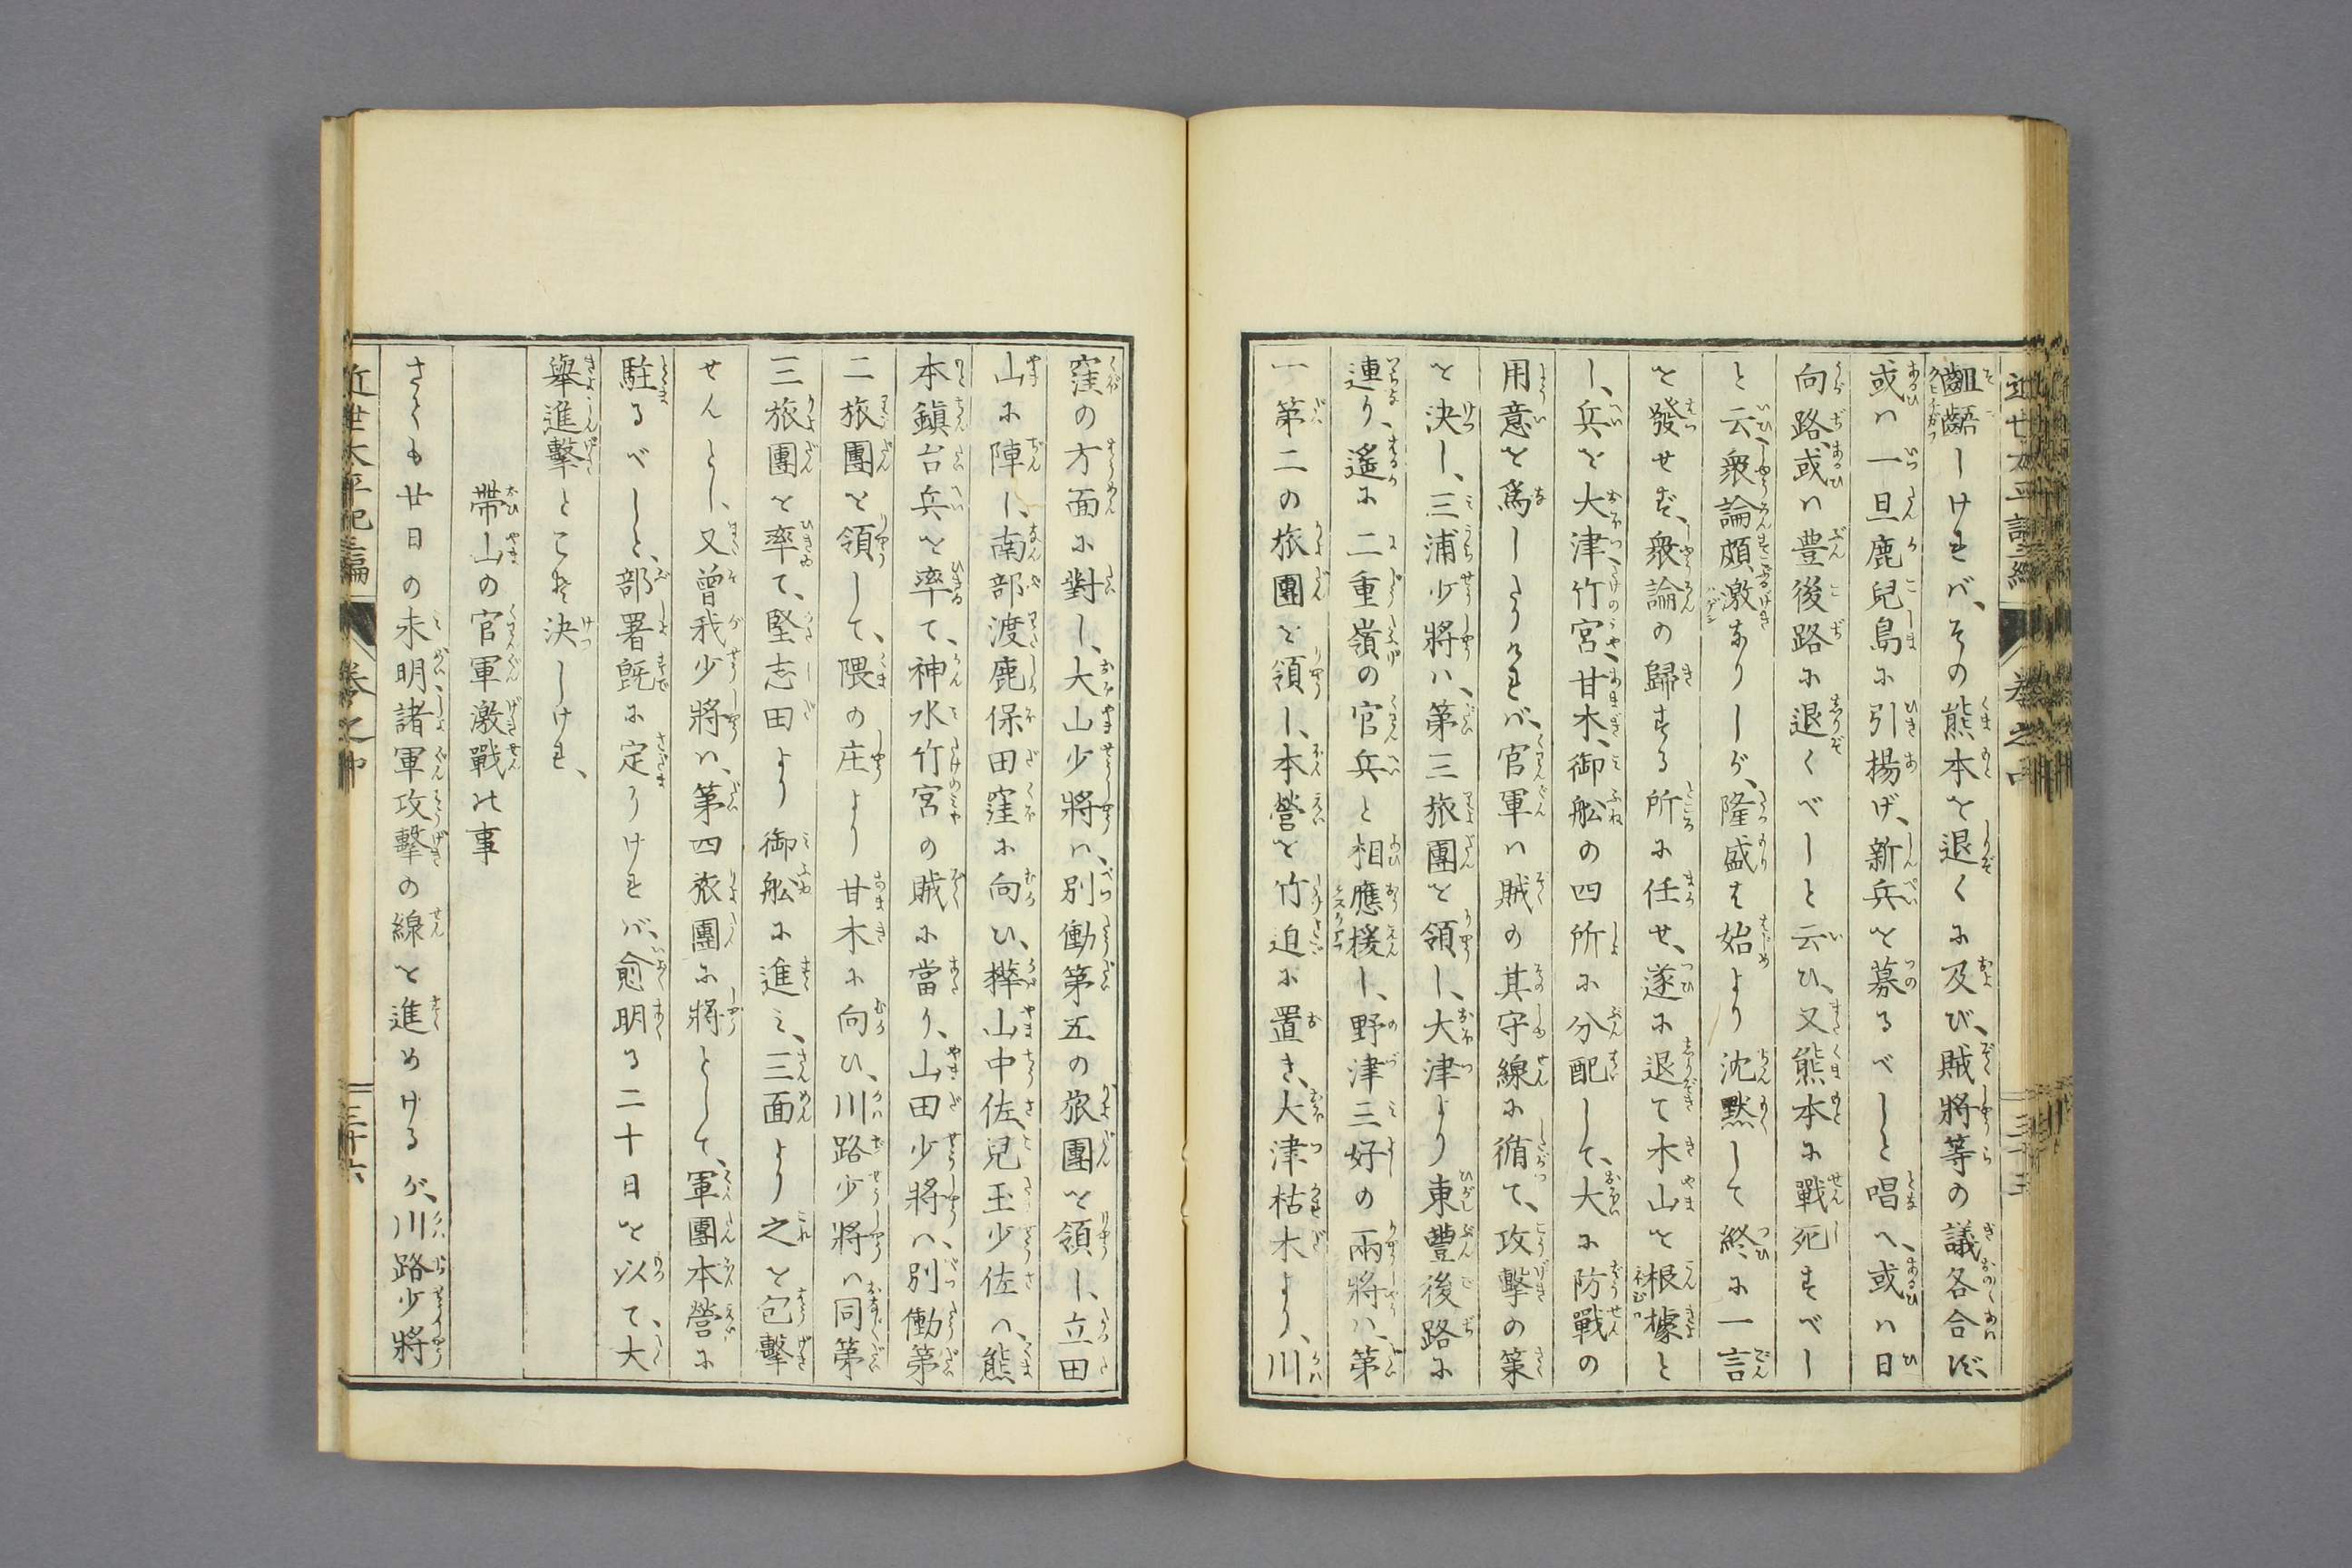 齟齬しけれバ、その熊本を退くに及び、賊將等の議各合ず、
或ハ一旦鹿兒島に引揚げ、新兵を募るべしと唱へ、或ハ日
向路、或ハ豊後路に退くべしと云ひ、又熊本に戰死すべし
と云衆論頗激ありしが、隆盛も始より沈黙して終に一言
を發せず、衆論の歸する所に任せ、遂に退て木山を根據と
し、兵を大津、竹宮、甘木、御舩の四所に分配して、大に防戰の
用意を爲しうければ、官軍ハ賊の其守線に循て、攻擊の策
を決し、三浦少將ハ、第三旅團を領し、大津より東豊後路に
連り、遙に二重嶺の官兵と相應援し、野津三好の兩將ハ、第
一第二の旅團を領し、本營を竹迫に置き、大津枯木より、川
窪の方面に對し、大山少將ハ、別働第五の旅團を領し、立田
山に陣し、南部渡鹿保田窪に向ひ、樺山中佐、兒玉少佐ハ、熊
本鎭台兵を率て、神水竹宮の賊に當り、山田少將ハ、別働第
二旅團を領して、隈の庄より甘木に向ひ、川路少將ハ同第
三旅團を率て、堅志田より御舩に進ミ、三面より之を包擊
せんとし、又曾我少將ハ、第四旅團に將として、軍團本營に
駐るべしと、部署既に定りけれバ、愈明る二十日を以て、大
擧進擊とこそ決しけれ、
帶山の官軍激戰の事
さても廿日の未明諸軍攻擊の線を進めけるが、川路少將
近世太平記二編 卷之中 三十六